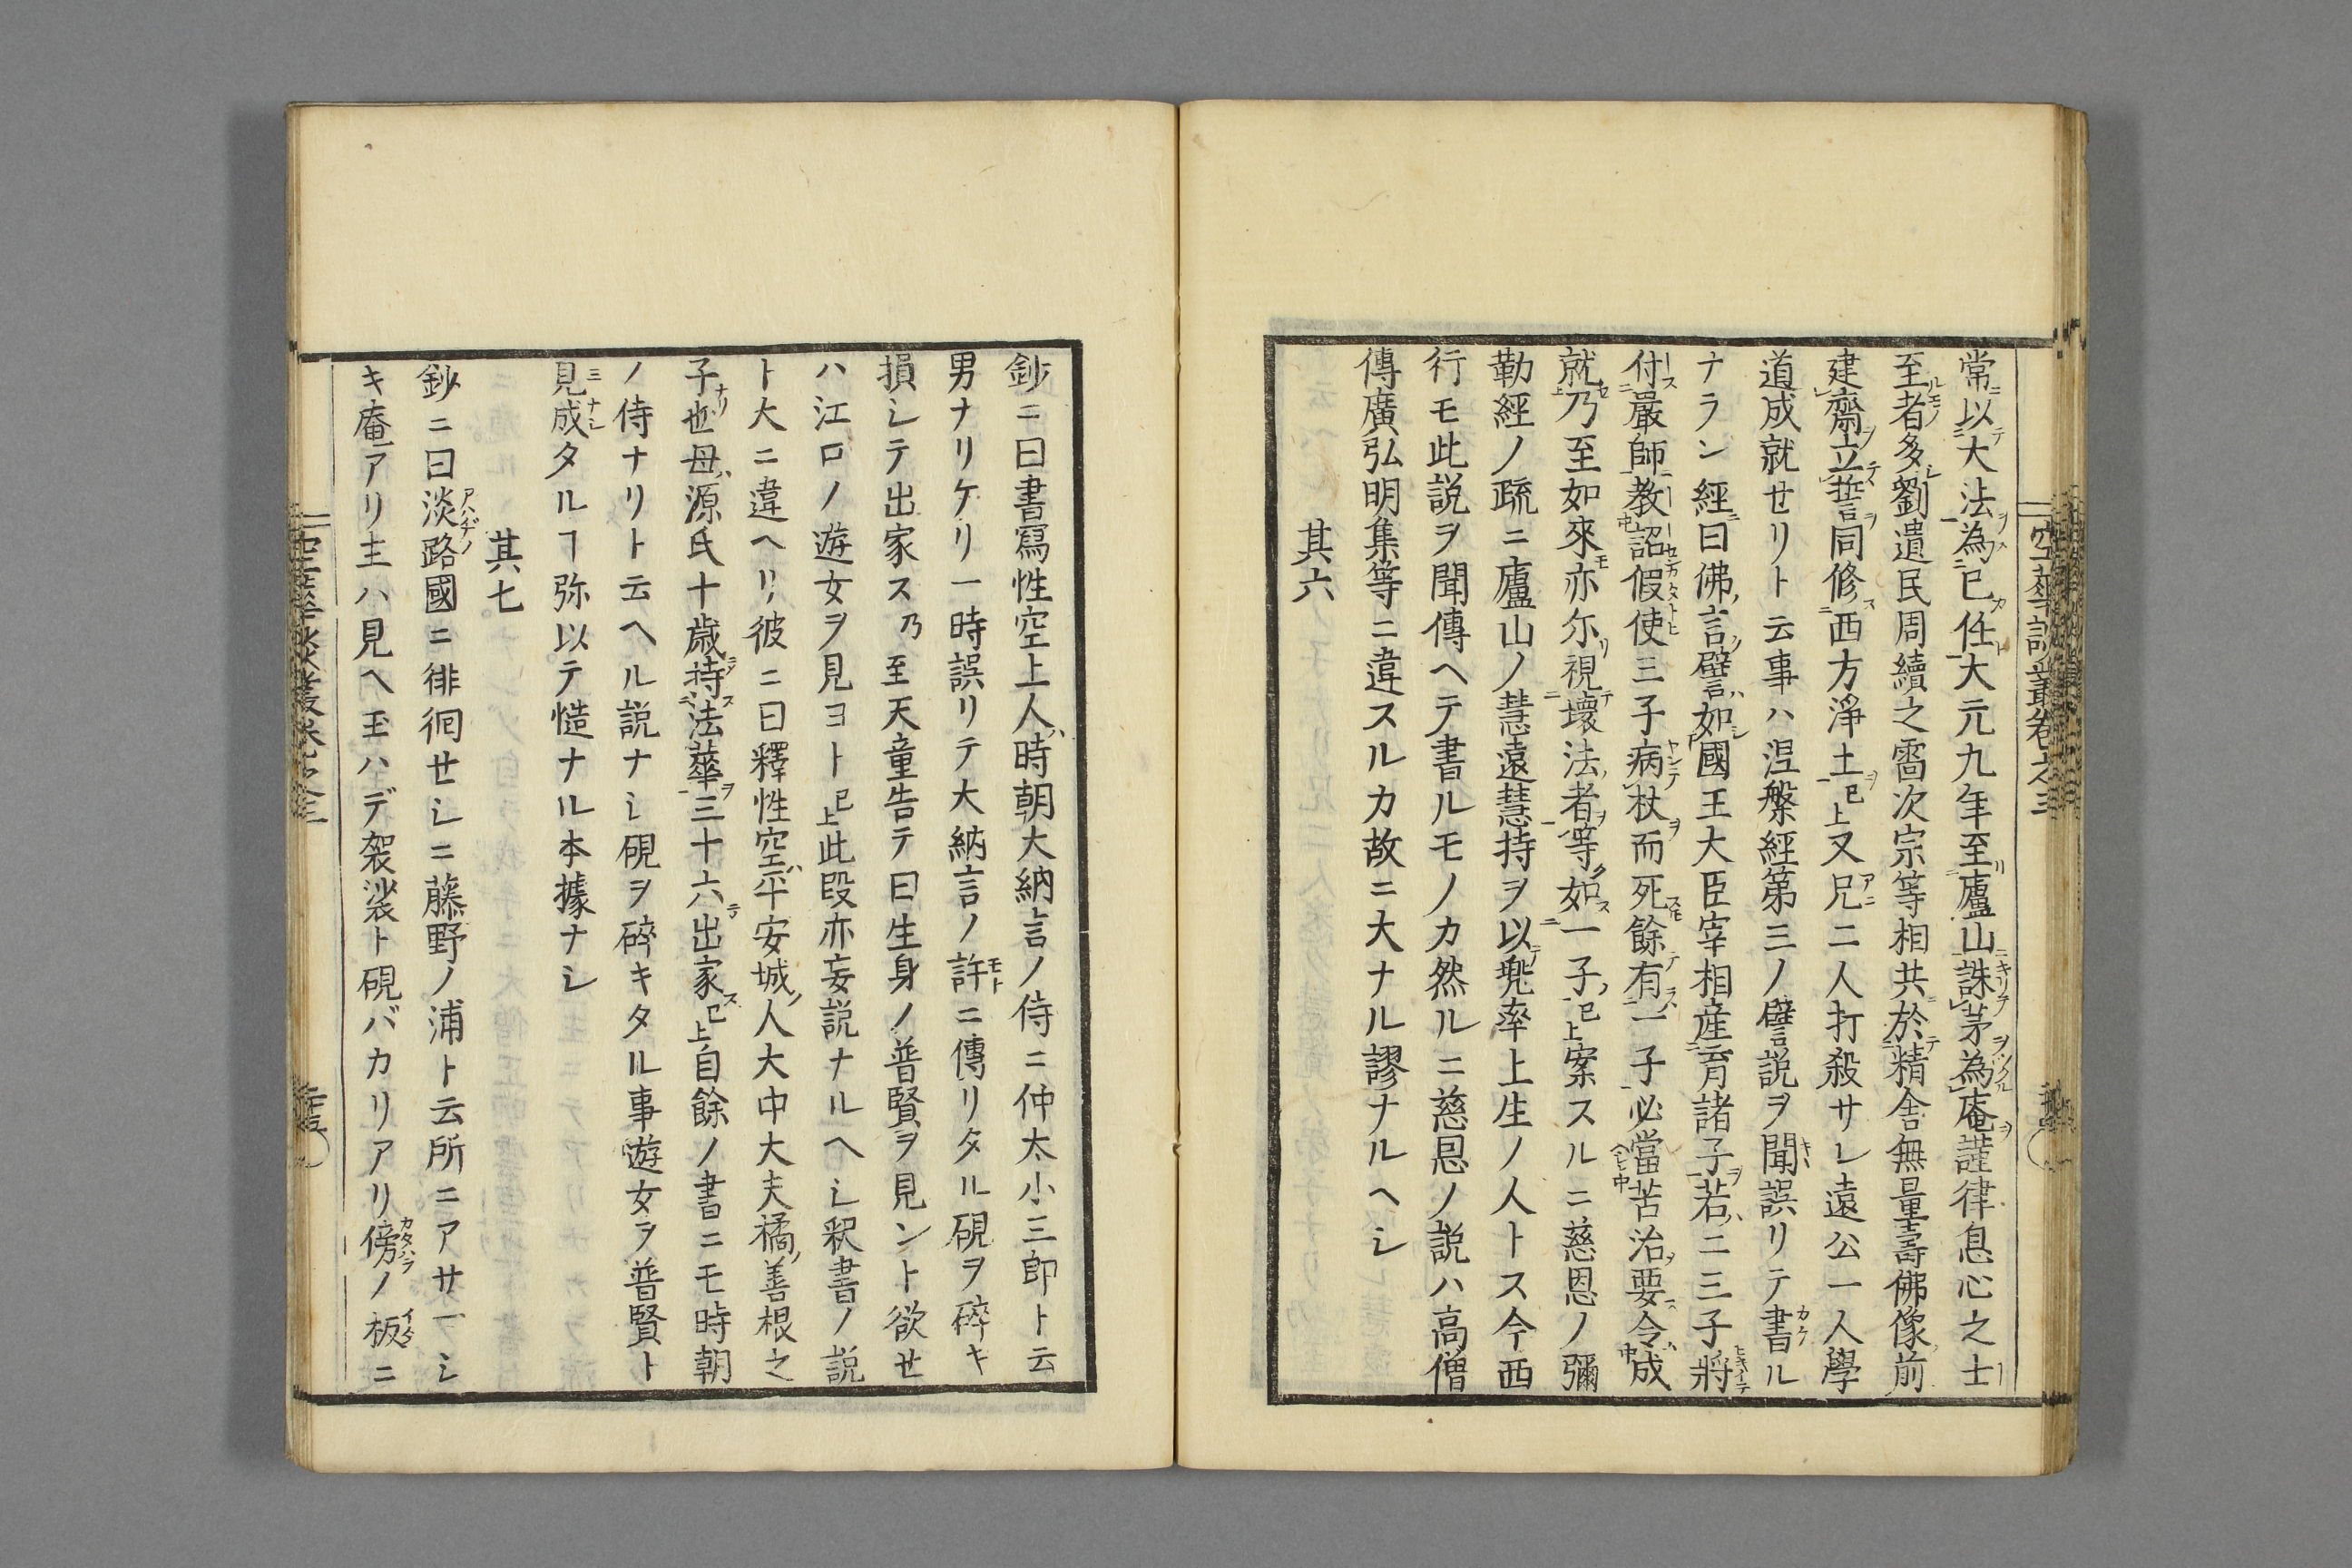 空華談叢卷之三
常以大法為己任大元九年至廬山誅茅為庵謹律息心之士
至者多劉遺民周續之雷次宗等相共於精舎無量壽佛像前
建齋立誓同修西方淨土已上又兄二人打殺サレ遠公一人學
道成就セリト云事ハ涅槃經第三ノ譬説ヲ聞誤リテ書ル
ナラン經曰佛言譬如國王大臣宰相産育諸子若二三子將
付嚴師教詔假使三子病杖而死餘有一子必當苦治要令成
就乃至如來亦尓視壞法者等如一子已上案スルニ慈恩ノ彌
勒經ノ疏ニ廬山ノ慧遠慧持ヲ以兜率上生ノ人トス今西
行モ此説ヲ聞傳ヘテ書ルモノカ然ルニ慈恩ノ説ハ高僧
傳廣弘明集等ニ違スルカ故ニ大ナル謬ナルヘシ
其六
鈔ニ曰書寫性空上人時朝大納言ノ侍ニ仲太小三郎ト云
男ナリケリ一時誤リテ大納言ノ許ニ傳リタル硯ヲ碎キ
損シテ出家ス乃至天童告テ曰生身ノ普賢ヲ見ント欲セ
ハ江口ノ遊女ヲ見ヨト已上此段亦妄説ナルヘシ釈書ノ説
ト大ニ違ヘリ彼ニ曰釋性空平安城人大中大夫橘善根之
子也母源氏十歳持法華三十六出家已上自餘ノ書ニモ時朝
ノ侍ナリト云ヘル説ナシ硯ヲ碎キタル事遊女ヲ普賢ト
見成タルヿ弥以テ慥ナル本據ナシ
其七
鈔ニ曰淡路國ニ徘徊セシニ藤野ノ浦ト云所ニアサ一シ
キ庵アリ主ハ見ヘ玉ハデ袈裟ト硯バカリアリ傍ノ板ニ